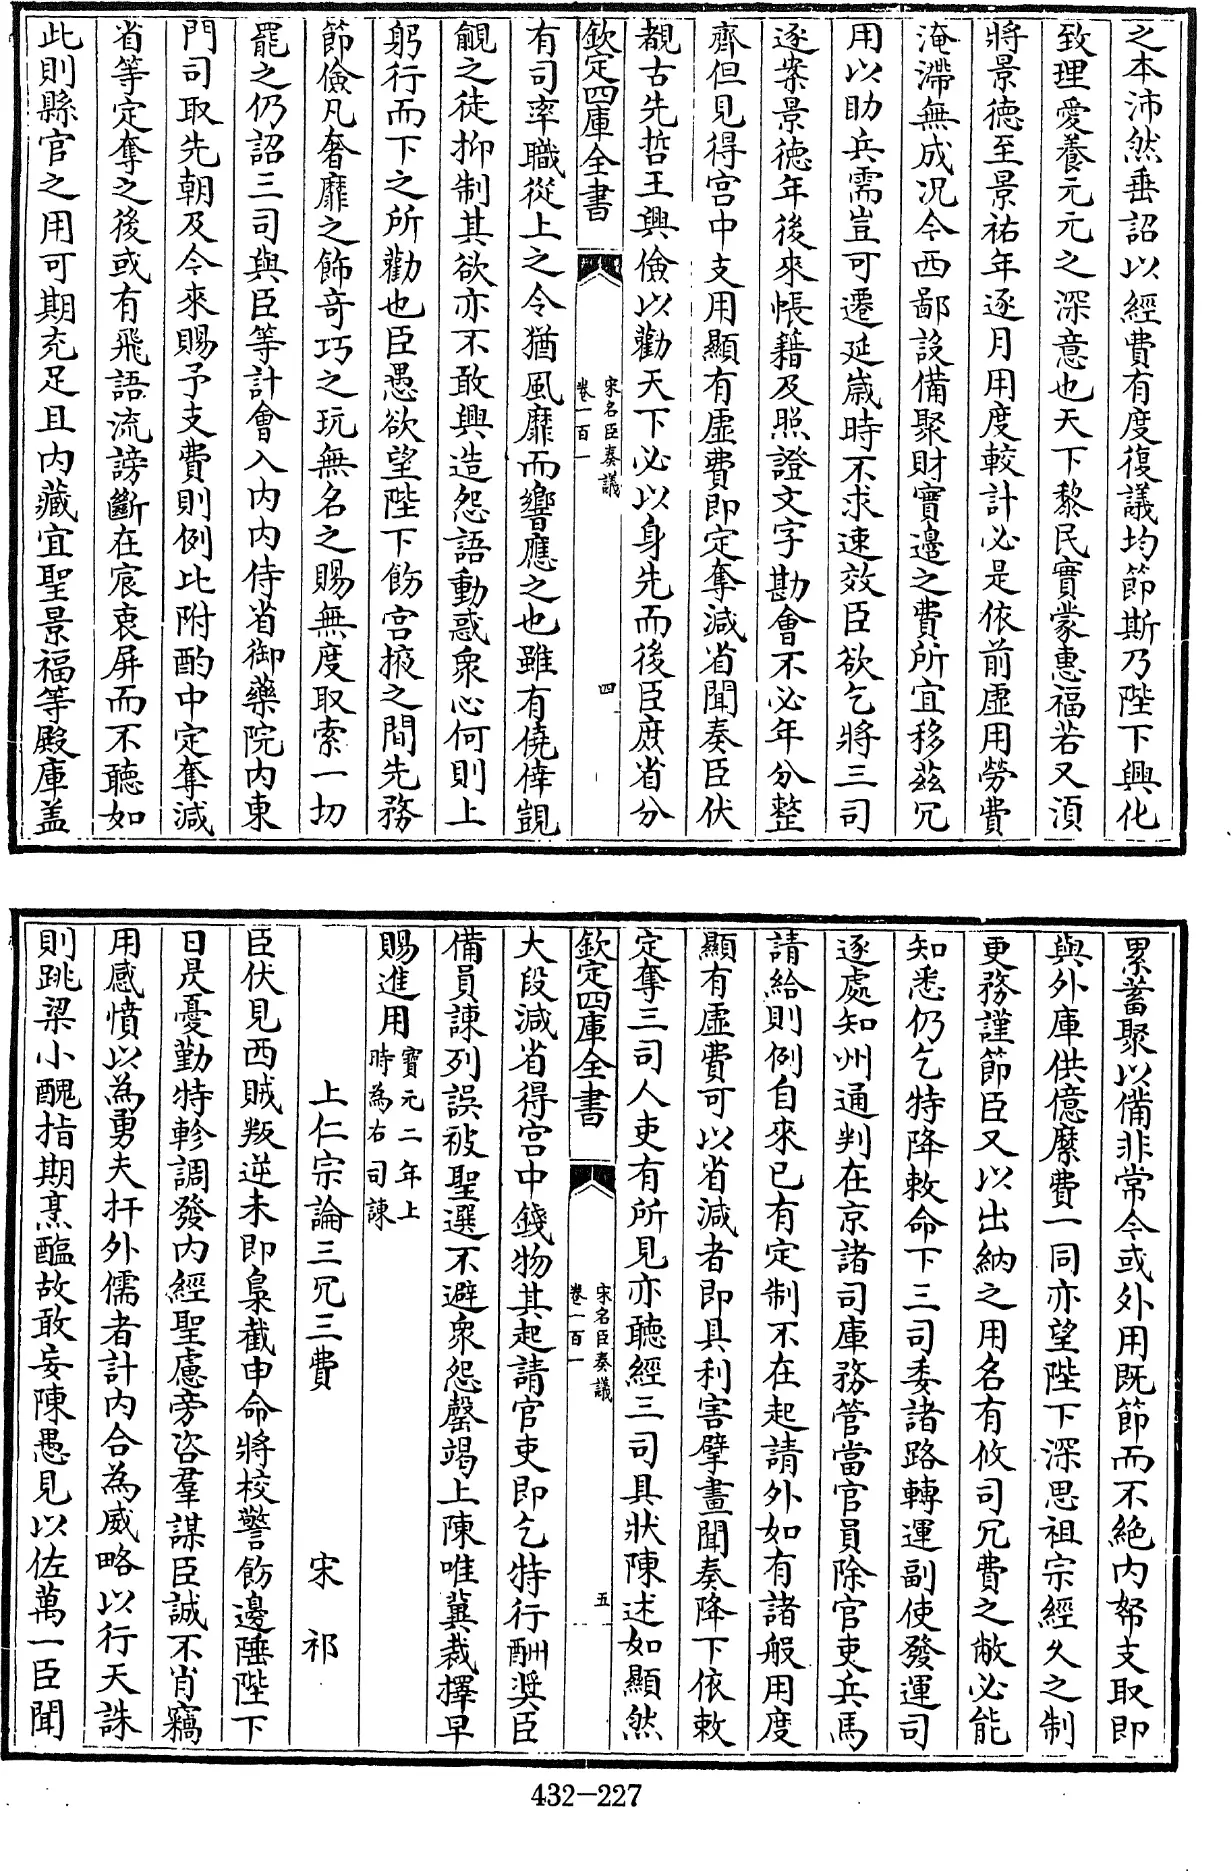 之本沛然垂詔以經費有度復議均節斯乃陛下興化
致理愛養元元之深意也天下黎民實蒙惠福若又湏
將景德至景祐年逐月用度較計必是依前虛用勞費
淹滯無成况今西鄙設備聚財實邊之費所宜移兹冗
用以助兵需豈可遷延歲時不求速效臣欲乞將三司
逐案景德年後來帳籍及照證文字勘會不必年分整
齊但見得宫中支用顯有虛費即定奪減省聞奏臣伏
覩古先哲王興儉以勸天下必以身先而後臣庶省分
欽定四庫全書
宋名臣奏議
卷一百一
四
有司率職從上之令猶風靡而響應之也雖有僥倖覬
覦之徒抑制其欲亦不敢興造怨語動惑衆心何則上
躬行而下之所勸也臣愚欲望陛下飭宫掖之間先務
節儉凡奢靡之飾奇巧之玩無名之賜無度取索一切
罷之仍詔三司與臣等計會入内内侍省御藥院内東
門司取先朝及今來賜予支費則例比附酌中定奪減
省等定奪之後或有飛語流謗斷在宸衷屏而不聽如
此則縣官之用可期充足且内藏宜聖景福等殿庫盖
累蓄聚以備非常今或外用既節而不絶内帑支取即
與外庫供億縻費一同亦望陛下深思祖宗經久之制
更務謹節臣又以出納之用名有攸司冗費之敝必能
知悉仍乞特降敕命下三司委諸路轉運副使發運司
逐處知州通判在京諸司庫務管當官員除官吏兵馬
請給則例自來已有定制不在起請外如有諸般用度
顯有虛費可以省減者即具利害擘畫聞奏降下依敕
定奪三司人吏有所見亦聽經三司具狀陳述如顯然
欽定四庫全書
宋名臣奏議
卷一百一
五
大段減省得宫中錢物其起請官吏即乞特行酬奨臣
備員諫列誤被聖選不避衆怨罄竭上陳唯冀裁擇早
賜進用寶元二年上時為右司諫
上仁宗論三冗三費　宋祁
臣伏見西賊叛逆未即梟截申命將校警飭邊陲陛下
日昃憂勤特軫調發内經聖慮旁咨羣謀臣誠不肖竊
用感憤以為勇夫扞外儒者計内合為威略以行天誅
則跳梁小醜指期烹醢故敢妄陳愚見以佐萬一臣聞
432-227